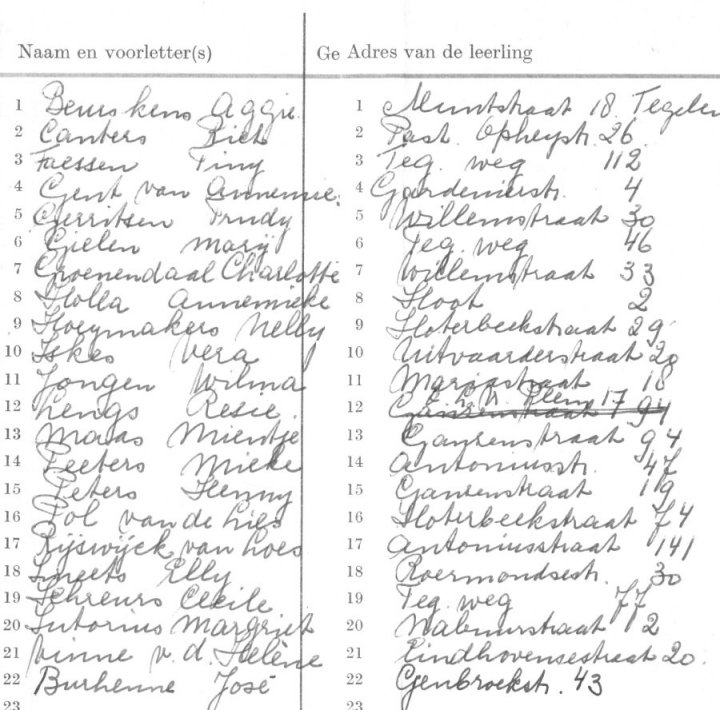 Naam en voorletter(s) Ge Adres van de leerling
1 Beurskens Aggie 1 Muntstraat 18 Tegelen
2 Canters Riet 2 Past. Opheystr. 26
3 Faessen Tiny 3 Teg. weg 112
4 Gent van Annemie. 4 Gardenierstr. 4
5 Gerritsen Trudy 5 Willemstraat 30
6 Gielen Marij 6 Teg. weg 46
7 Groenendaal Charlotte 7 Willemstraat 33
8 Holla Annemieke 8 2
9 Hoeymakers Nelly 9 Sloterbeekstraat 29
10 Iskes Vera 10 Uitvaarderstraat 20
11 Jongen Wilma 11 Mariastraat 18
12 Lengs Resie. 12 Plein 17 Ganzenstraat 94
13 Maas Mientje 13 Ganzenstraat 94
14 Peeters Mieke 14 Antoniusstr. 47
15 Peters Henny 15 Ganzenstraat 119
16 Pol van de Lies 16 Sloterbeekstraat 74
17 Rijswijck van Loes 17 Antoniusstraat 141
18 Smeets Elly 18 Roermondsestr. 30
19 Schreurs Cecile 19 Teg. weg 77
20 Sutorius Margriet 20 Walmurstraat 2
21 Vinne v. d. Helène 21 Eindhovensestraat 20.
22 Burhenne José 22 Genbroekstr. 43
23 23